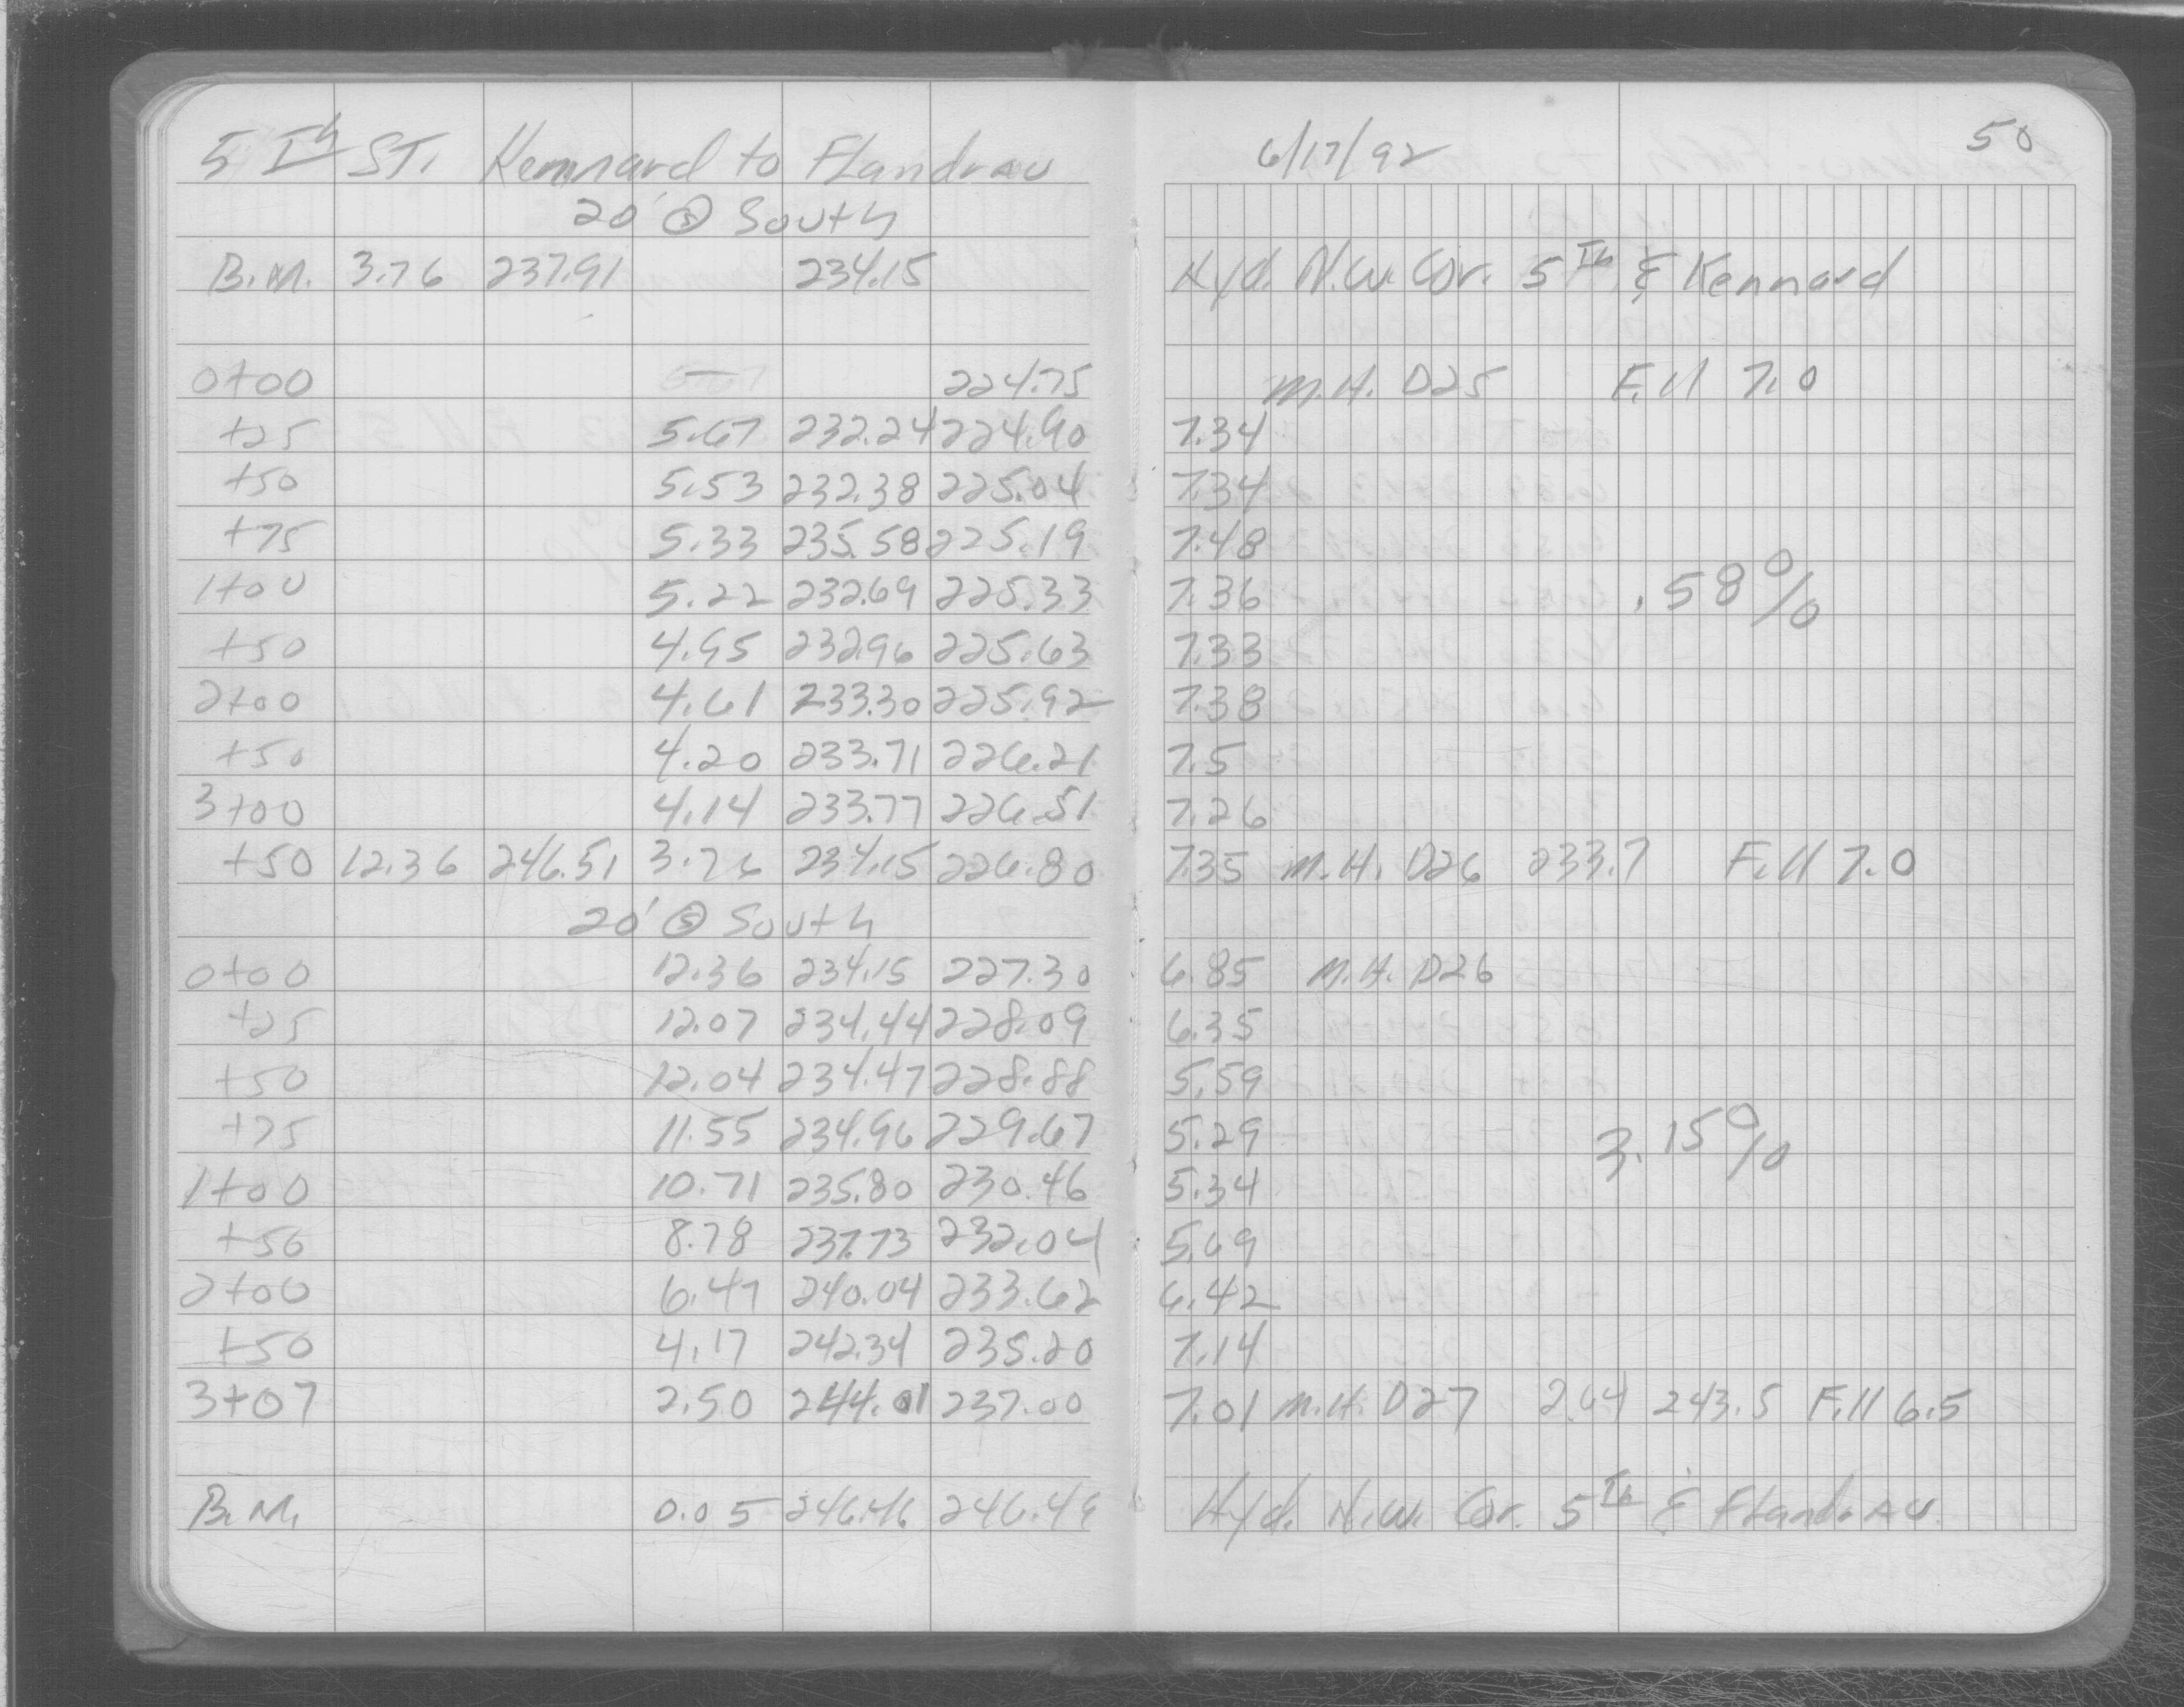 5Th ST. Kennard to Flandrau 6/17/92 50
20' @ South
B.M. 3.76 237.91 234.15 Hyd. N.W. Cor. 5Th & Kennard
0+00 — 224.75 M.H. D25 Fill 7.0
+25 5.67 232.24 224.90 7.34
+50 5.53 232.38 225.04 7.34
+75 5.33 235.58 225.19 7.48
1+00 5.22 232.69 225.33 7.36 .58%
+50 4.95 232.96 225.63 7.33
2+00 4.61 233.30 225.92 7.38
+50 4.20 233.71 226.21 7.5
3+00 4.14 233.77 226.51 7.26
+50 12.36 246.51 3.76 234.15 226.80 7.35 M.H. D26 233.7 Fill 7.0
20' @ South
0+00 12.36 234.15 227.30 6.85 M.H. D26
+25 12.07 234.44 228.09 6.35
+50 12.04 234.47 228.88 5.59
+75 11.55 234.96 229.67 5.29 3.15%
1+00 10.71 235.80 230.46 5.34
+50 8.78 237.73 232.04 5.69
2+00 6.47 240.04 233.62 6.42
+50 4.17 242.34 235.20 7.14
3+07 2.50 244.01 237.00 7.01 M.H. D27 2.64 243.5 Fill 6.5
B.M. 0.05 246.46 Hyd. N.W. Cor. 5Th & Flandrau